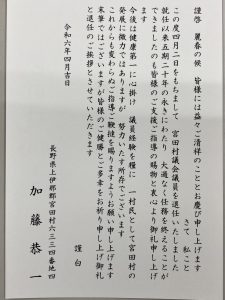 謹啓　麗春の候　皆様には益々ご清祥のこととお慶び申し上げます
さて　私こと
この度四月二日をもちまして　宮田村議会議員を退任いたしました
就任以来五期二十年の永きにわたり　大過なく任務を終えることが
できましたのも皆様のご支援ご指導の賜物と衷心より御礼申し上げ
ます
今後は健康第一に心掛け　議員経験を糧に　一村民として宮田村の
発展に微力ではありますが　努力いたす所存でございます
これからも変わらぬご指導ご鞭撻を賜りますようお願い申し上げます
末筆ではございますが皆様のご健勝とご多幸をお祈り申し上げ御礼
と退任のご挨拶とさせていただきます
謹白
令和六年四月吉日
長野県上伊那郡宮田村六三三四番地四
加藤恭一